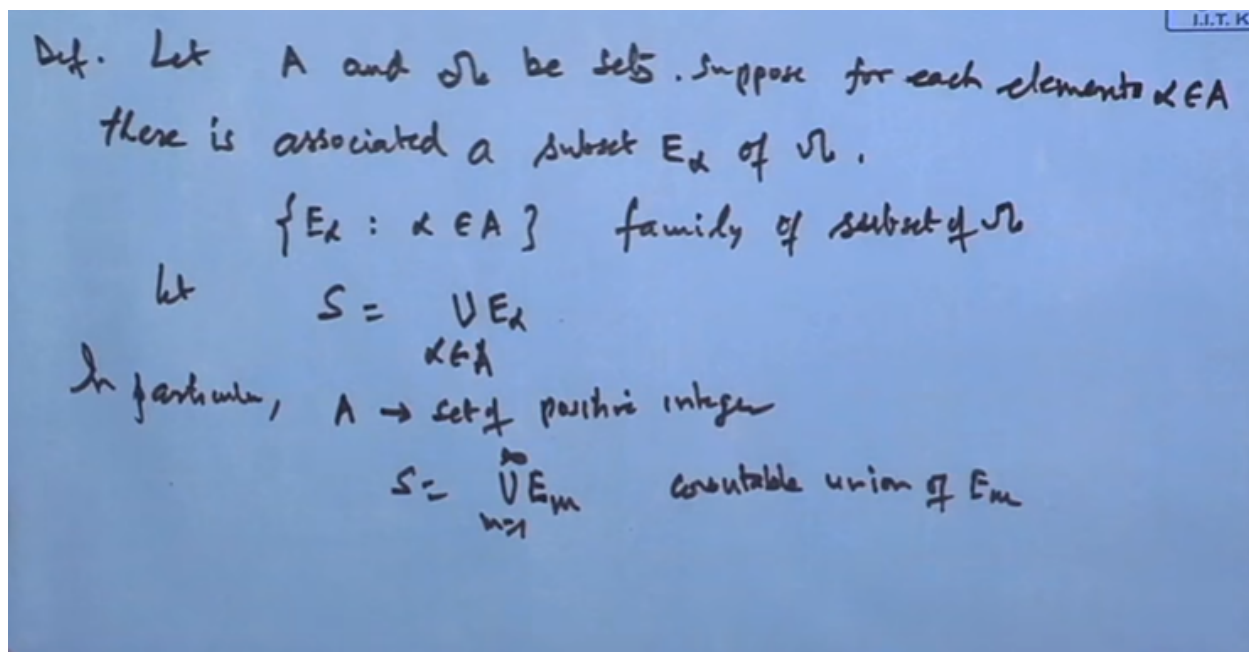 I.I.T. K
Def. Let A and Ω be sets. Suppose for each elements α ∈ A
there is associated a subset E_α of Ω.
{E_α : α ∈ A} family of subset of Ω
Let S = ∪ E_α
α ∈ A
In particular, A → set of positive integer
∞
S = ∪ E_m countable union of E_m
m=1